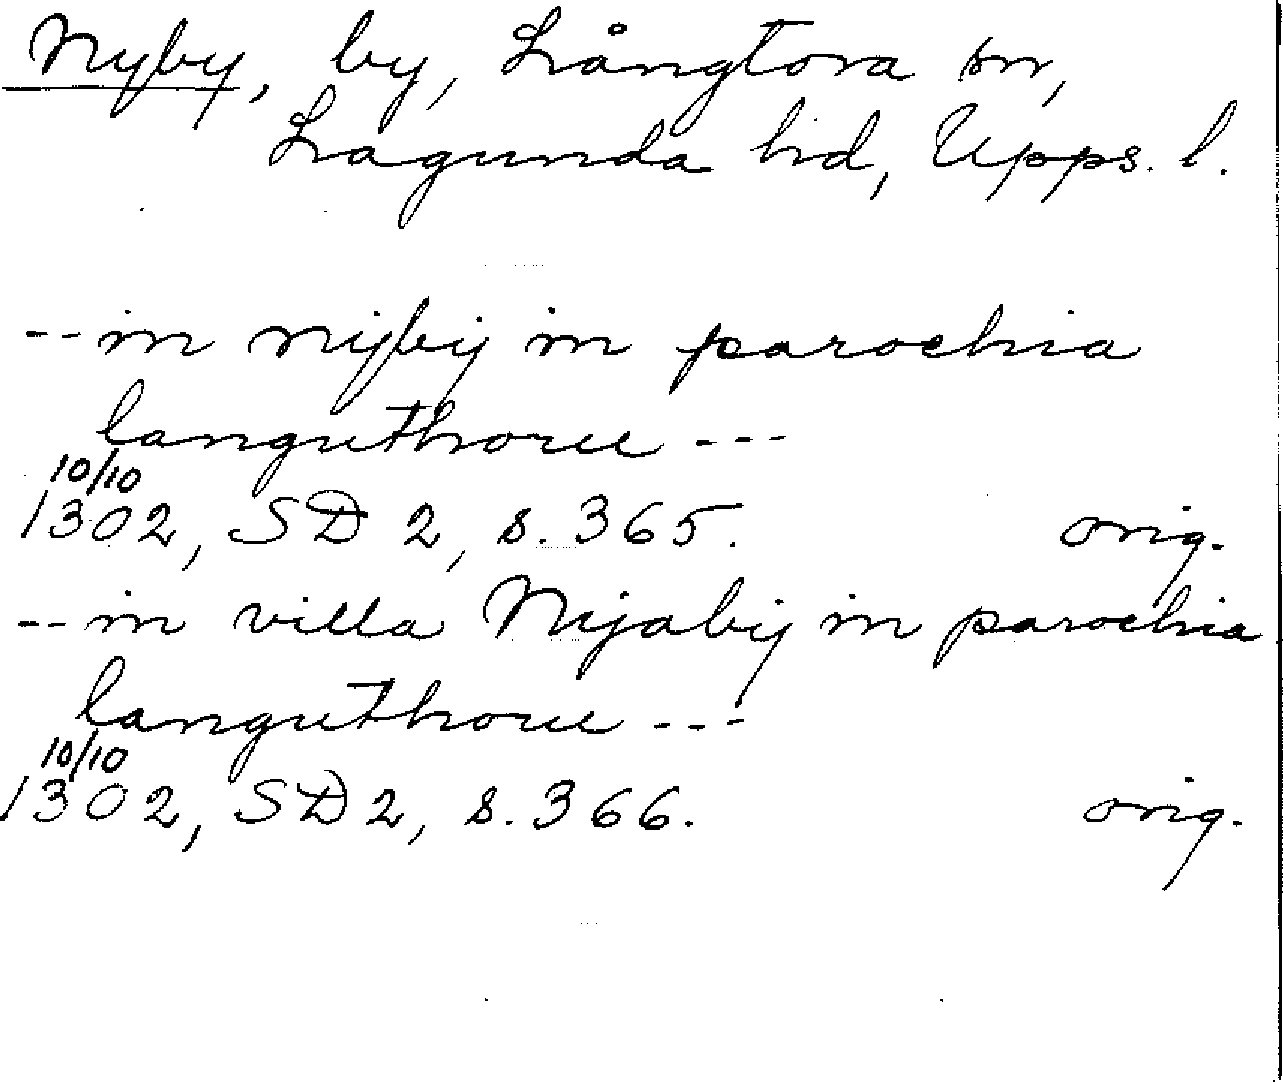 Nyby, by, Långtora sn,
Lagunda hd, Upps. l.
-- in nijbij in parochia
languthorue ---
10/10
1302, SD 2, s. 365. orig.
-- in villa Nijabij in parochia
languthorue ---
10/10
1302, SD 2, s. 366. orig.